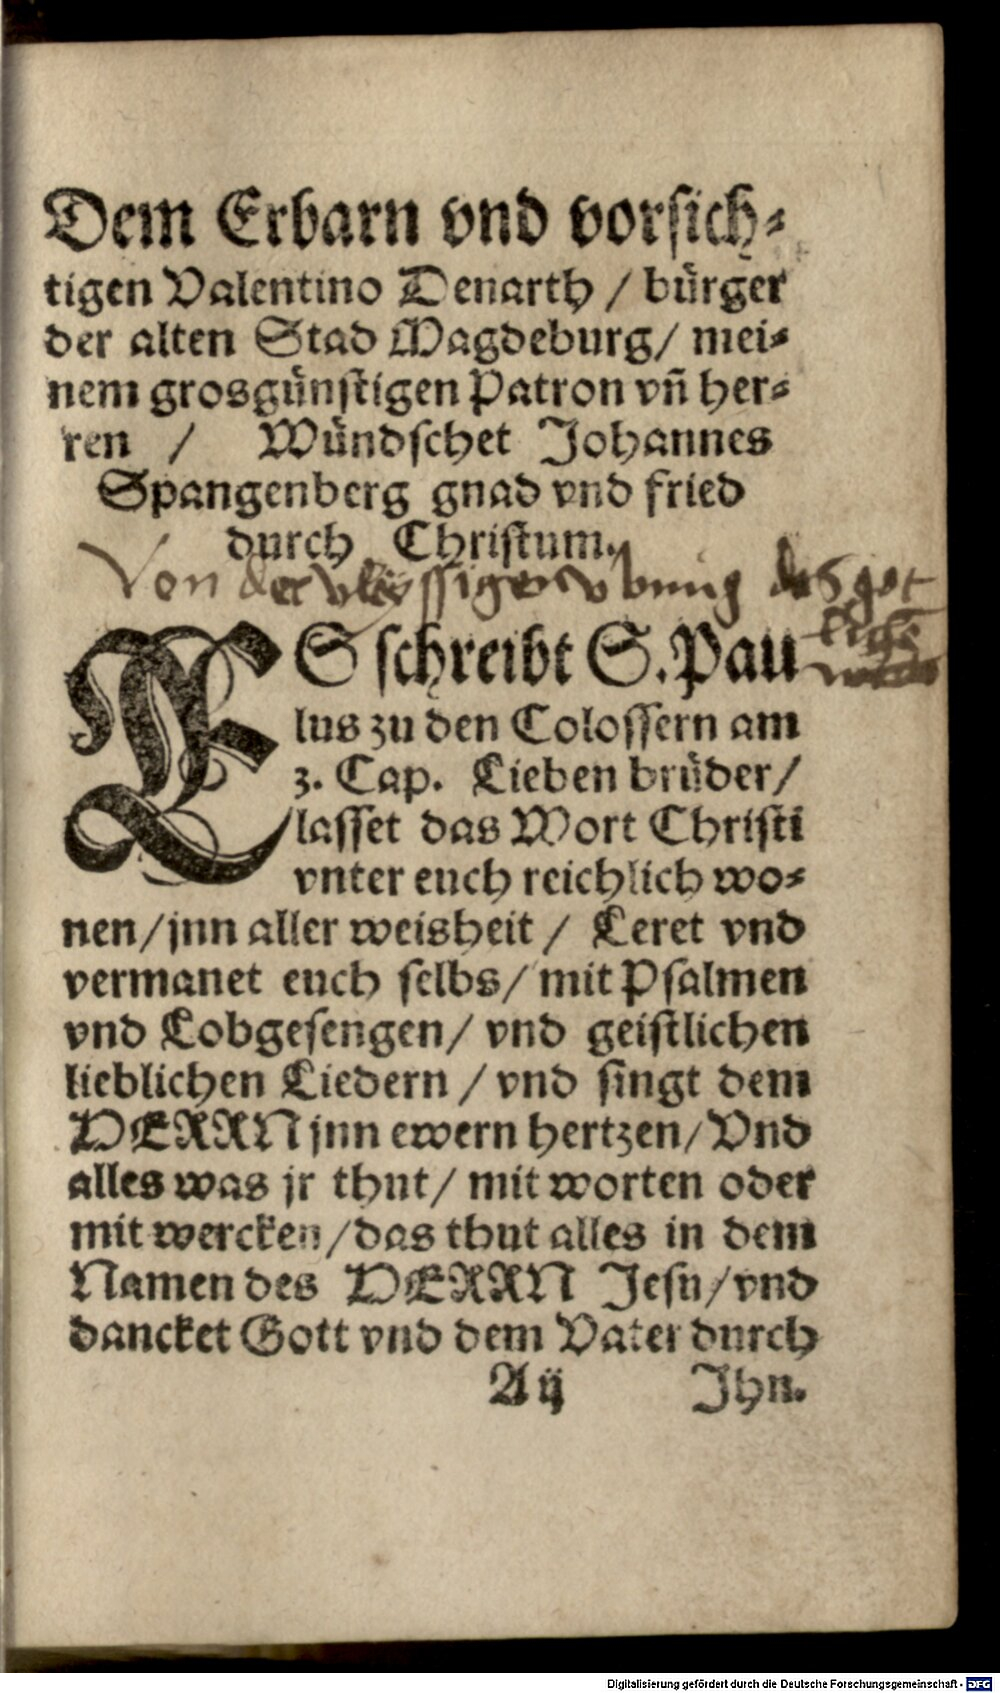 Dem Erbarn vnd vorsich⸗
tigen Valentino Denarth / bürger
der alten Stad Magdeburg / mei⸗
nem grosgünstigen Patron vñ her⸗
ren / Wündschet Johannes
Spangenberg gnad vnd fried
durch Christum.
Von der vleyssigen vbung des got
lichē
worts
ES schreibt S. Pau
lus zu den Colossern am
3. Cap. Lieben brüder /
lasset das Wort Christi
vnter euch reichlich wo⸗
nen / jnn aller weisheit / Leret vnd
vermanet euch selbs / mit Psalmen
vnd Lobgesengen / vnd geistlichen
lieblichen Liedern / vnd singt dem
HERRN jnn ewern hertzen / Vnd
alles was jr thut / mit worten oder
mit wercken / das thut alles in dem
Namen des HERRN Jesu / vnd
dancket Gott vnd dem Vater durch
A ij Jhn.
Digitalisierung gefördert durch die Deutsche Forschungsgemeinschaft - DFG